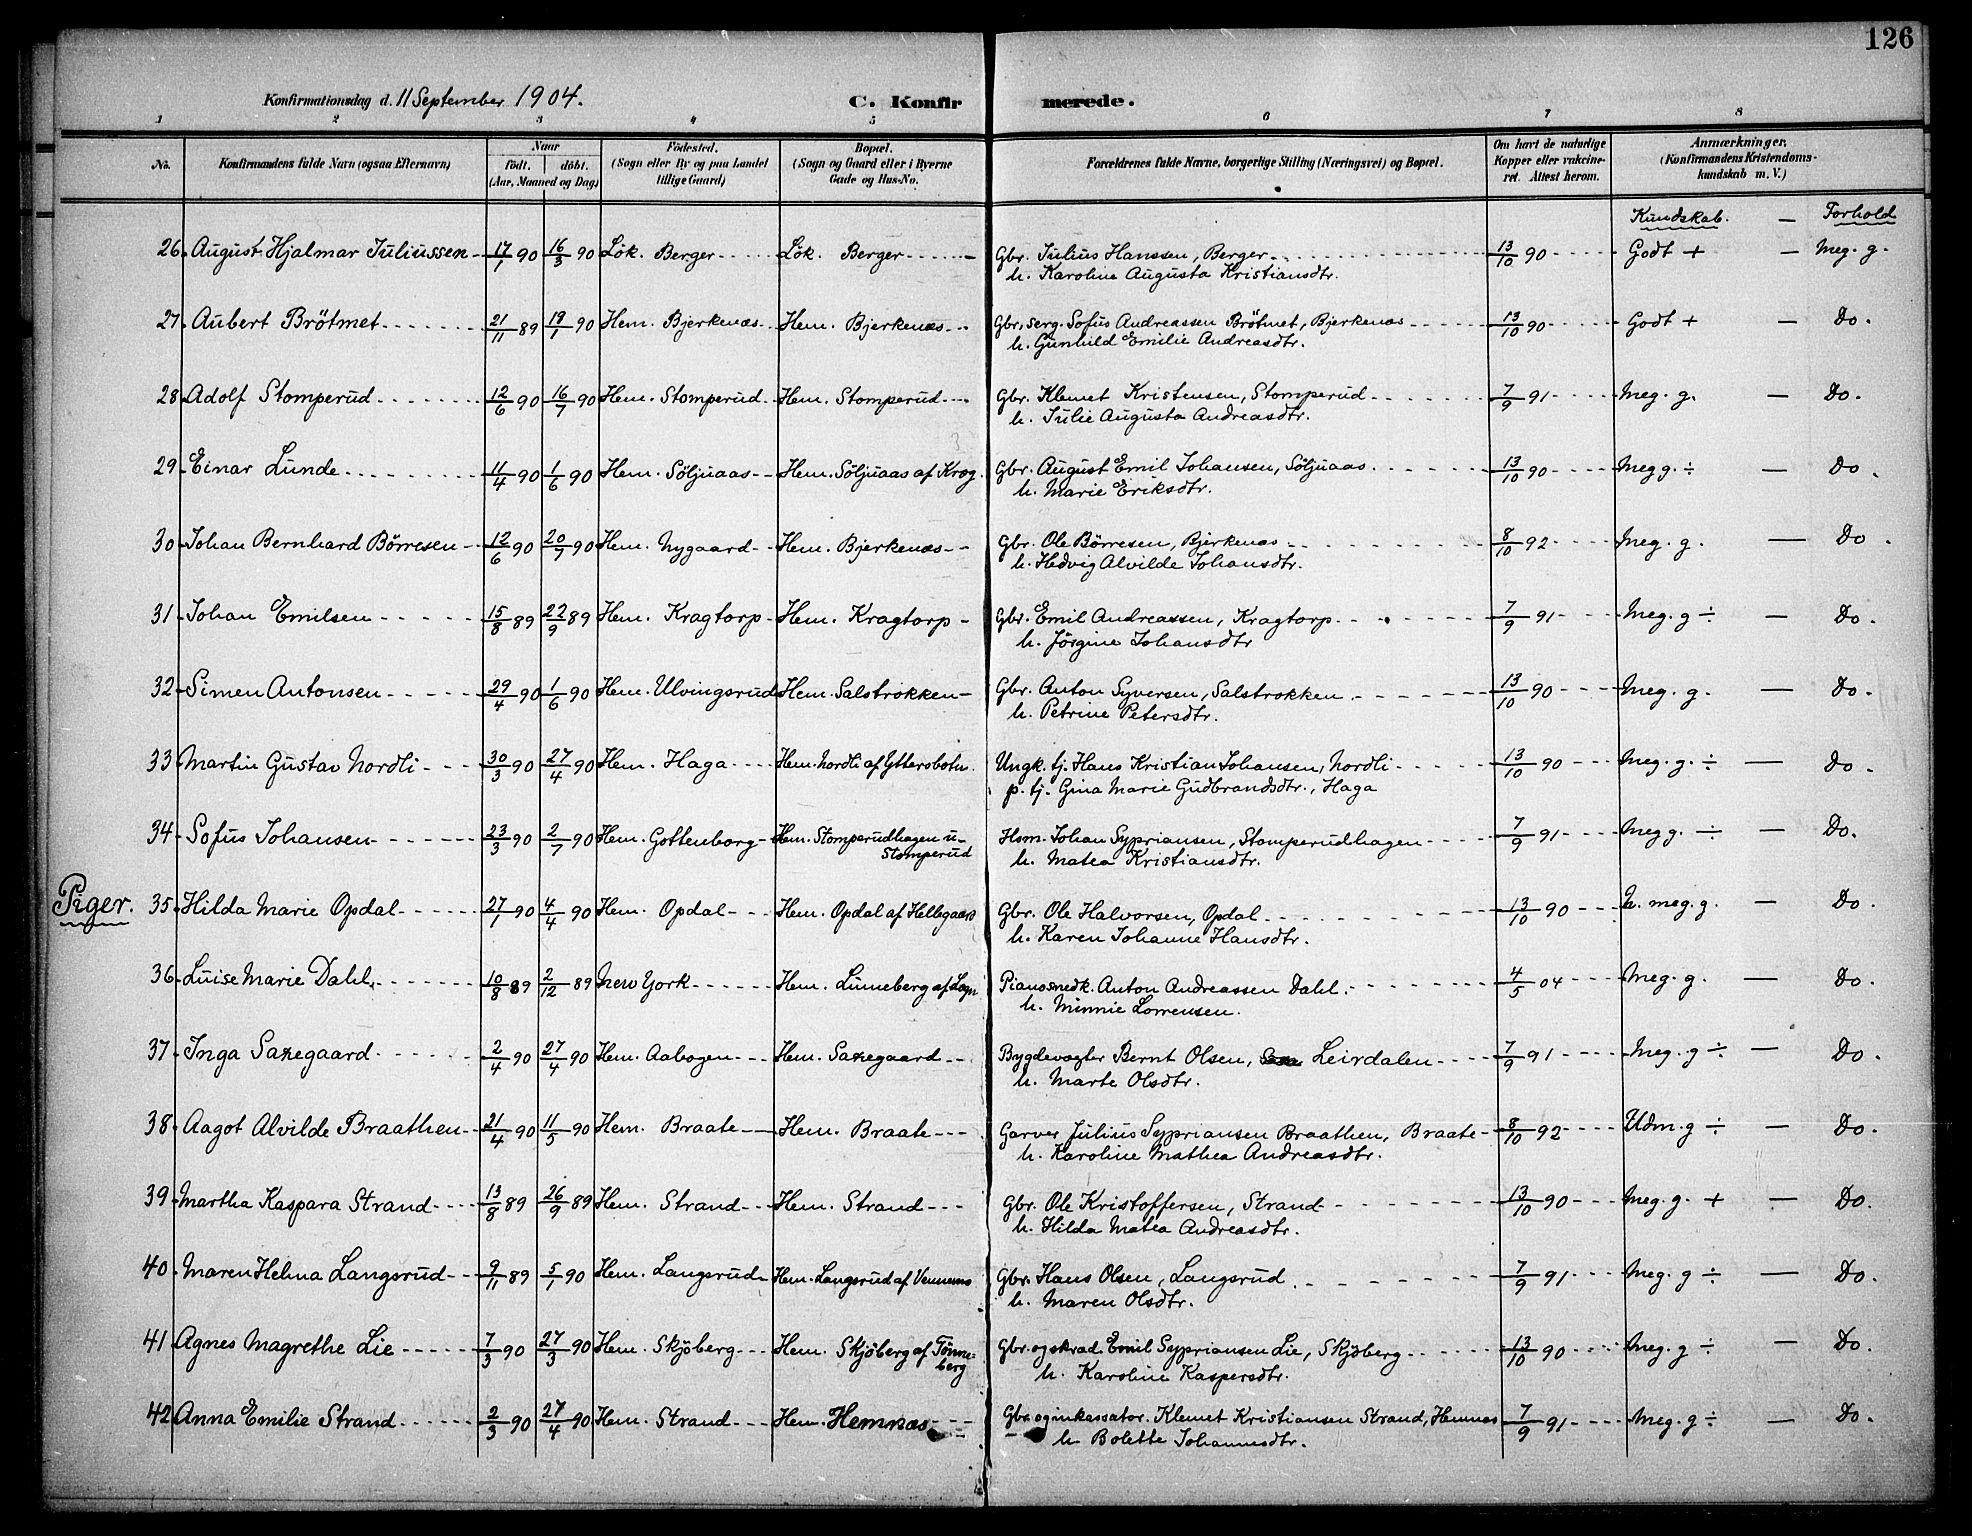 126
Konfirmationsdag d. 11 September 1904. C. Konfirmerede.
1 2 3 4 5 6 7 8
No. Konfirmandens fulde Navn (ogsaa Efternavn) Naar født. døbt. (Aar, Maaned og Dag) Fødested. (Sogn eller By og paa Landet tillige Gaard) Bopæl. (Sogn og Gaard eller i Byerne Gade og Hus-No. Forældrenes fulde Navne, borgerlige Stilling (Næringsvei) og Bopæl. Om havt de naturlige Kopper eller vakcineret. Attest herom. Anmærkninger. (Konfirmandens Kristendomskundskab m. V.)
Kundskab. — Forhold
26. August Hjalmar Juliussen 17/1 90 16/3 90 Løk. Berger Løk. Berger Gbr. Julius Hanssen, Berger 13/10 90 Godt + — Meg. g.
h. Karoline Augusta Kristiansdtr.
27. Aubert Brötmet 21/11 89 19/1 90 Hem. Bjerkenæs Hem. Bjerkenæs Gbr. serg. Sofus Andreassen Brötmet, Bjerkenæs 13/10 90 Godt + — Do.
h. Gunhild Emilie Andreasdtr.
28. Adolf Stomperud 12/6 90 16/7 90 Hem. Stomperud Hem. Stomperud Gbr. Klemet Kristensen, Stomperud 7/9 91 Meg. g. — Do.
h. Julie Augusta Andreasdtr.
29. Einar Lunde 11/4 90 1/6 90 Hem. Söljuaas Hem. Söljuaas af Krog. Gbr. August Emil Johansen, Söljuaas 13/10 90 Meg g. ÷ — Do.
h. Marie Eriksdtr.
30. Johan Bernhard Börresen 12/6 90 20/7 90 Hem. Nygaard Hem. Bjerkenæs Gbr. Ole Börresen, Bjerkenæs 8/10 92 Meg. g. — Do.
h. Hedvig Alvilde Johansdtr.
31. Johan Emilsen 15/8 89 22/9 89 Hem. Kragtorp Hem. Kragtorp Gbr. Emil Andreassen, Kragtorp 7/9 91 Meg. g ÷ — Do.
h. Jörgine Johansdtr
32. Simen Antonsen 29/4 90 1/6 90 Hem. Ulvingsrud Hem. Salstrokken Gbr. Anton Syversen, Salstrokken 13/10 90 Meg. g. — Do.
h. Petrine Petersdtr.
33. Martin Gustav Nordli 30/3 90 27/4 90 Hem. Haga Hem. Nordli af Yttersbotn. Ungk. tj. Hans Kristian Johansen, Nordli 13/10 90 Meg. g. ÷ — Do.
p. tj. Gina Marie Gudbrandsdtr., Haga
34. Sofus Johansen 23/3 90 2/7 90 Hem. Gottenborg Hem. Stomperudhagen u. Stomperud Hsm. Johan Sypriansen, Stomperudhagen 7/9 91 Meg g. ÷ — Do.
h. Matea Kristiansdtr.
Piger. 35. Hilda Marie Opdal 27/1 90 4/4 90 Hem. Opdal Hem. Opdal af Hellegaard Gbr. Ole Halvorsen, Opdal 13/10 90 N. meg. g. — Do.
h. Karen Johanne Hansdtr.
36. Luise Marie Dahl. 10/8 89 2/12 89 New York Hem. Lüneberg af Løgn Pianosnedk. Anton Andreassen Dahl. 4/5 04 Meg. g. — Do.
h. Minnie Lorrensen.
37. Inga Saxegaard 2/4 90 27/4 90 Hem. Aabogen Hem. Saxegaard Bygdevagter Bernt Olsen, Leirdalen 7/9 91 Meg. g ÷ — Do.
h. Marte Olsdtr.
38. Aagot Alvilde Braathen 21/4 90 11/5 90 Hem. Braate Hem. Braate Garver Julius Sypriansen Braathen, Braate 8/10 92 Udm. g ÷ — Do.
h. Karoline Mathea Andreasdtr.
39. Martha Kaspara Strand 13/8 89 26/9 89 Hem. Strand Hem. Strand Gbr. Ole Kristoffersen, Strand 13/10 90 Meg. g. + — Do.
h. Hilda Matea Andreasdtr.
40. Maren Helma Langsrud 9/11 89 5/1 90 Hem. Langsrud Hem. Langsrud af Vennems Gbr. Hans Olsen, Langsrud 7/9 91 Meg. g ÷ — Do.
h. Maren Olsdtr.
41. Agnes Magrethe Lie 7/3 90 27/3 90 Hem. Skjöberg Hem. Skjöberg af Tönneberg Gbr. og skræd. Emil Sypriansen Lie, Skjöberg 13/10 90 Meg. g ÷ — Do.
h. Karoline Kaspersdtr.
42. Anna Emilie Strand 2/3 90 27/4 90 Hem. Strand Hem. Hemnæs Gbr. og inkassator. Klemet Kristiansen Strand, Hemnæs 7/9 91 Meg. g ÷ — Do.
h. Bolette Johannesdtr.